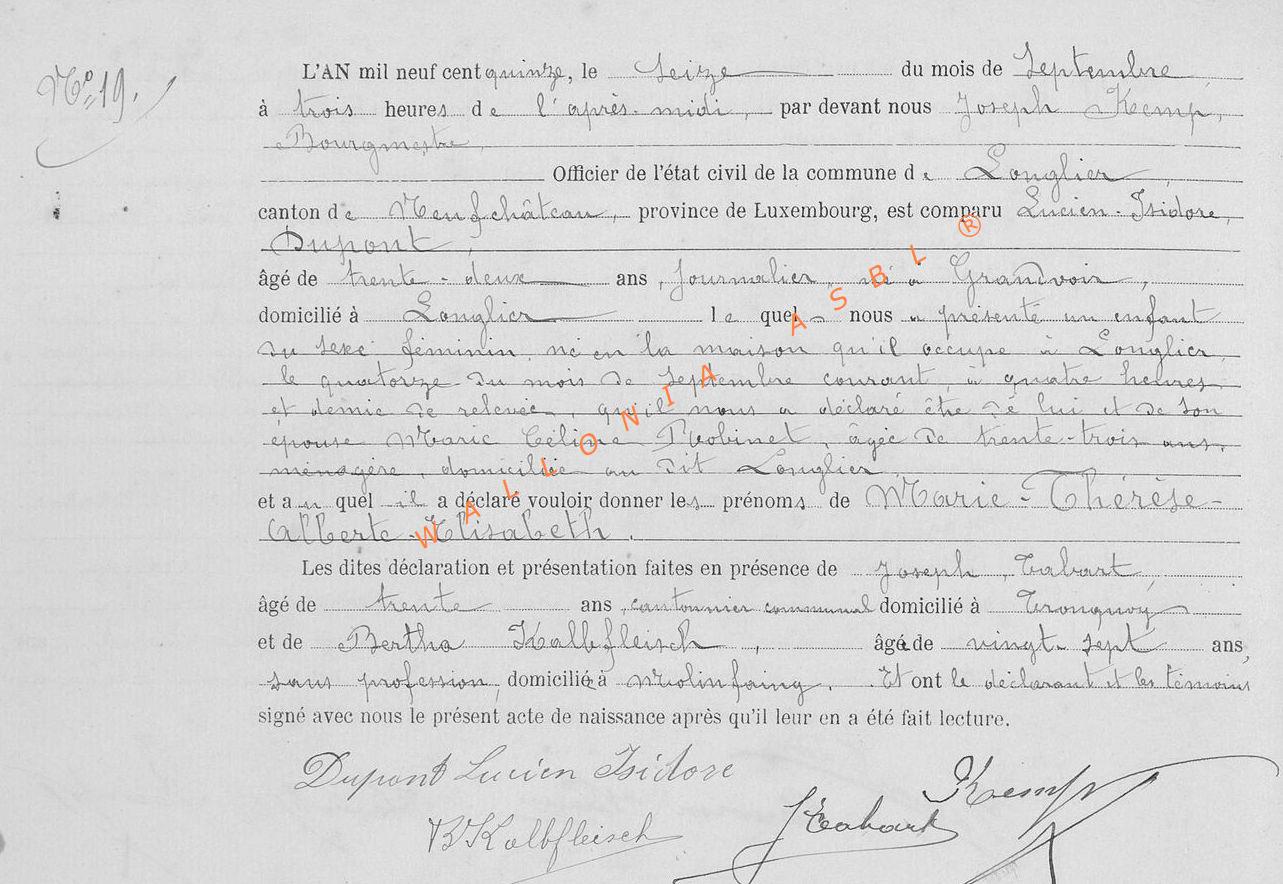 Nº 19.
L'AN mil neuf cent quinze, le seize du mois de Septembre
à trois heures de l'après-midi, par devant nous Joseph Kemp,
Bourgmestre,
Officier de l'état civil de la commune de Longlier,
canton de Neufchâteau, province de Luxembourg, est comparu Lucien-Isidore,
Dupont,
âgé de trente-deux ans, journalier, né à Grandvoir,
domicilié à Longlier le quel nous a présenté un enfant
du sexe féminin, né en la maison qu'il occupe à Longlier,
le quatorze du mois de septembre courant, à quatre heures
et demie de relevée, qu'il nous a déclaré être de lui et de son
épouse Marie Céline Robinet, âgée de trente-trois ans,
ménagère, domiciliée au dit Longlier
et au quel il a déclaré vouloir donner les prénoms de Marie-Thérèse-
Alberte-Elisabeth.
Les dites déclaration et présentation faites en présence de Joseph Tabart,
âgé de trente ans, cantonnier communal domicilié à Tronquoy
et de Bertha Kalbfleisch, âgée de vingt-sept ans,
sans profession, domiciliée à Molinfaing. Et ont le déclarant et les témoins
signé avec nous le présent acte de naissance après qu'il leur en a été fait lecture.
Dupont Lucien Isidore
Kemp
B Kalbfleisch
J Tabart
WALLONIA ASBL ®